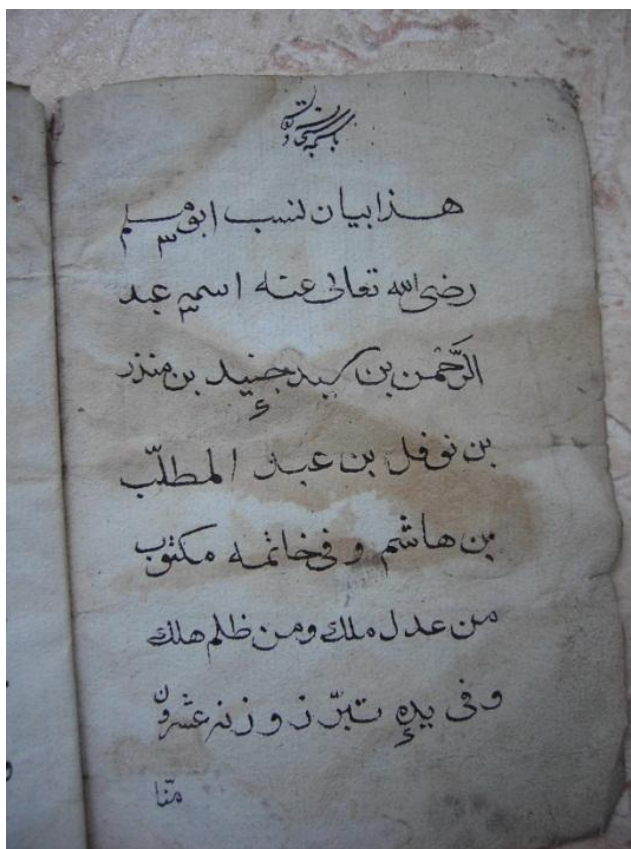 هذا بيان نسب ابو مسلم
رضى الله تعالى عنه اسمه عبد
الرَّحْمن بن سيد جنيد بن منذر
بن نوفل بن عبد المطلّب
بن هاشم و فى خاتمه مكتوب
من عدل ملك ومن ظلم هلك
و فى يده تبرّ ز وزنه عشرون
منّا